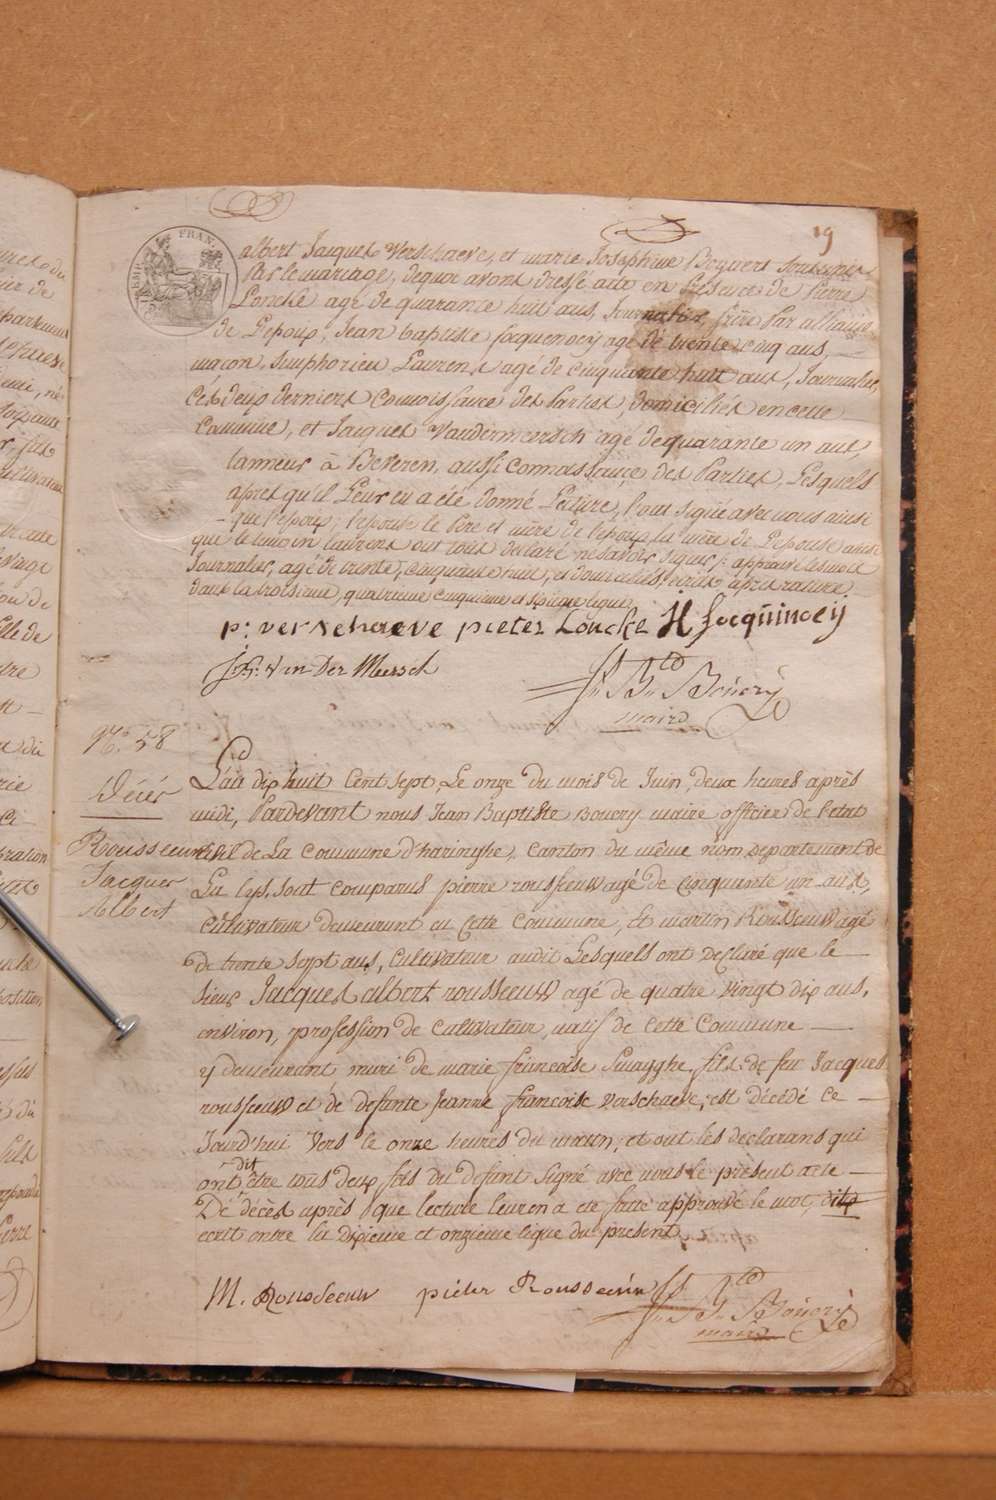 19
EMP. FRAN.
albert Jacques Verschaeve, et marie Josephine Boguert sont unis
Par le mariage, de quoi avons dressé acte en présence de Pierre
Loncke agé de quarante huit ans, Journalier, frère Par alliance
de l'epoux, Jean baptiste Jocquenoey agé de trente cinq ans,
maçon, Simphorien Laurens agé de cinquante huit ans, Journalier,
Ces deux derniers Connoissance des Parties, domiciliés en cette
Commune, et Jacques Vandermeersch agé de quarante un ans,
tanneur à Beveren, aussi connoissance des Parties, Lesquels
apres qu'il Leur en a été donné Lecture, l'ont signé avec nous ainsi
que l'epoux; l'epouse le Père et mère de l'epoux, la mère de l'epouse ainsi
que le temoin laurens ont tous declaré ne savoir signer; approuvé les mots
Journalier, agé de trente, cinquante huit, et domiciliés, écrits après rature
dans la troisième, quatrieme cinquieme et sixieme ligne
p: verschaeve pieter Loncke H Jocquinoeij
J: Van Der Meersch
Jn. Bte. Bouery
maire
N.° 58
Décés
Rousseeuw
Jacques
Albert
L'an dix huit Cent sept, Le onze du mois de Juin, deux heures après
midi, Pardevant nous Jean Baptiste Bouery maire officier de l'etat
civil de La Commune d'haringhe, Canton du même nom, departement de
La lys, sont comparus pierre rousseeuw agé de cinquante un ans,
cultivateur demeurant en cette commune, Et martin Rousseeuw agé
de trente sept ans, Cultivateur audit Lesquels ont declaré que le
sieur Jacques albert rousseeuw agé de quatre vingt dix ans,
environ, profession de Cultivateur, natif de Cette Commune
y demeurant mari de marie francoise Swagghe, fils de feu Jacques
rousseeuw et de defunte Jeanne francoise verschaeve, est décédé ce
Jourd'hui vers le onze heures du matin, et ont les declarans qui
dit
ont être tous deux fils du defunt signé avec nous le présent acte
De décès après que lecture leur en a été faite approuvé le mot, dit
ecrit entre la dixieme et onzieme ligne du présent
M. Rousseeuw pieter Rousseeuw Jn. Bte. Bouery
maire